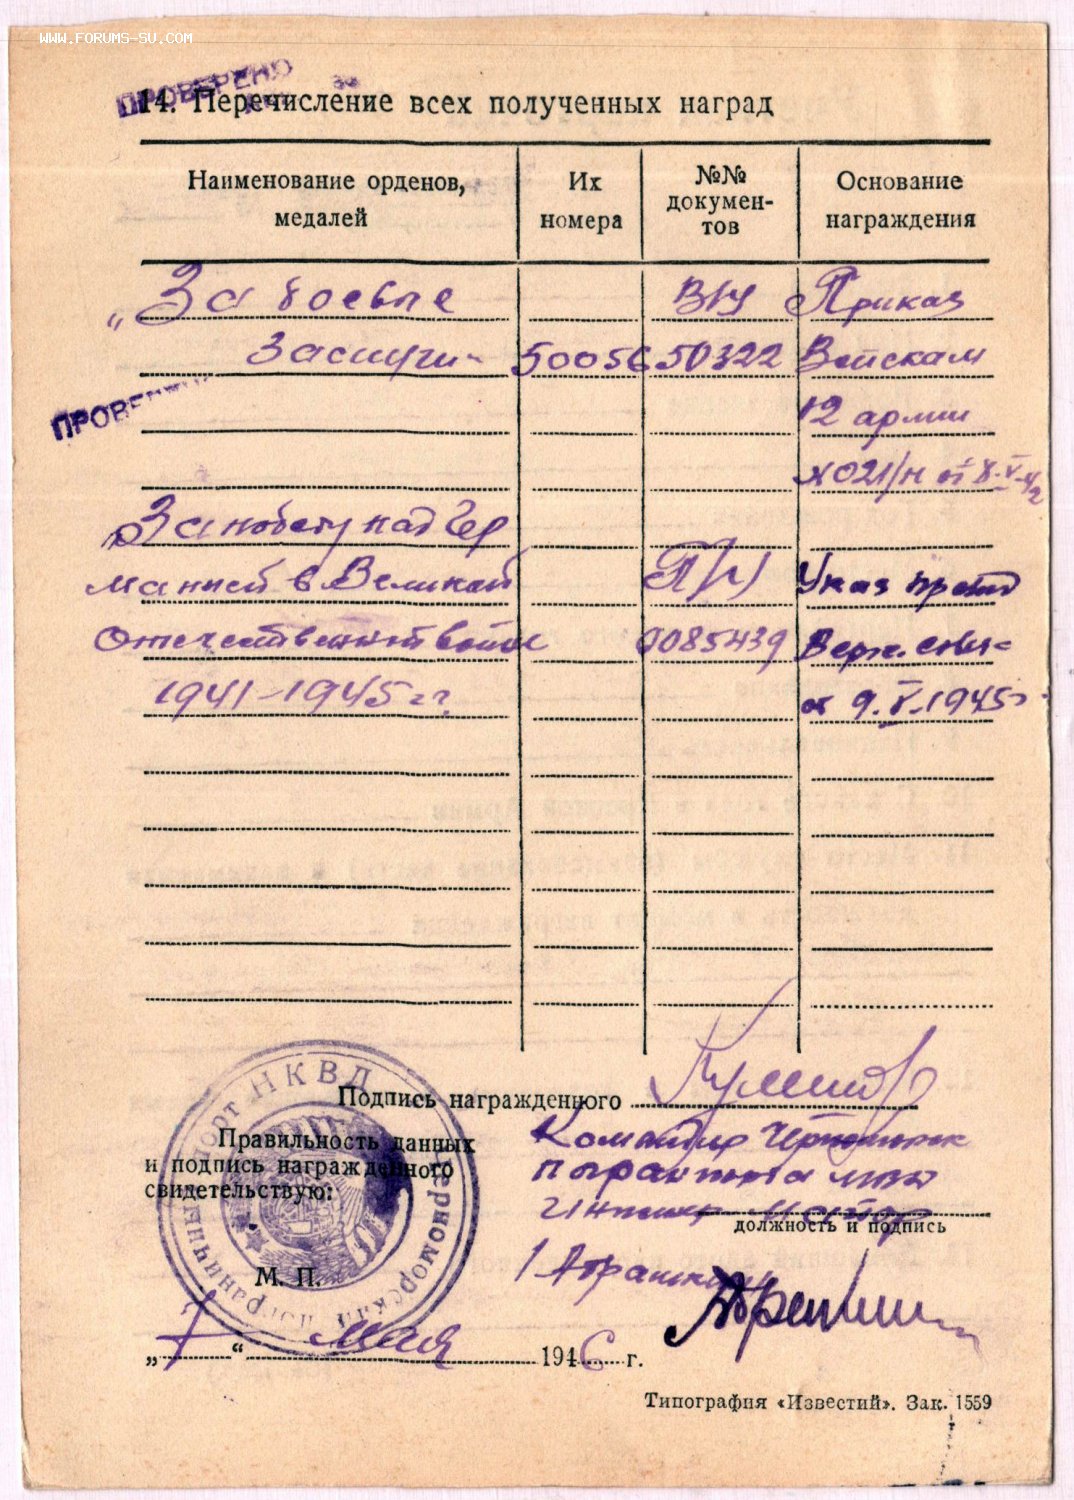 WWW.FORUMS-SU.COM
ПРОВЕРЕНО
14. Перечисление всех полученных наград
Наименование орденов, медалей
Их номера
№№ докумен-тов
Основание награждения
„За боевые
В/Ч
Приказ
Заслуги"
50056
50322
Войскам
12 армии
№ 021/н от 8.V-42
ПРОВЕРЕНО
„За победу над Гер
манией в Великой
Указ през
Отечественной войне
0085439
Верх. совета
1941-1945 гг.
от 9.V.1945г
Подпись награжденного
Правильность данных
и подпись награжденного
свидетельствую:
Командир
Инженер майор
должность и подпись
М. П.
НКВД
Черноморский
пограничный
порт
/Абрашкин/
„7“ мая 1946 г.
Типография «Известий». Зак. 1559